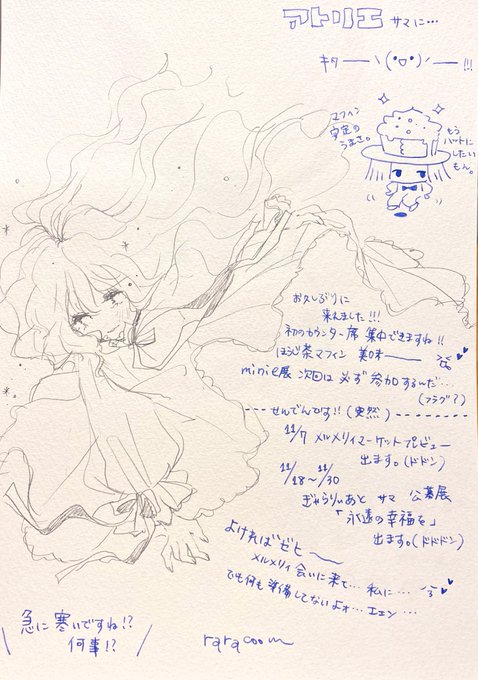 アトリエ サマに…
キタ――ヽ(°▽°)ノ――!!!
マフィン
安定の
うまさ。
もう
ハートに
したい
もん。
お久しぶりに
来れました!!!
初のカウンター席 集中できますね!!
ほうじ茶マフィン 美味――
minie展 次回は 必ず 参加するんだ…
(フラグ?)
---せんでんです!!(突然)--------
11/7 メルメリィマーケットプレビュー
出ます。(ドドン)
11/18〜11/30
ぎゃらりぃあと サマ 公募展
「永遠の幸福を」
出ます。(ドドドン)
よければゼヒ〜
メルメリィ 会いに来て… 私に…
でも何も準備してないよォ… エエン…
急に寒いですね!?
何事!?
raracoom